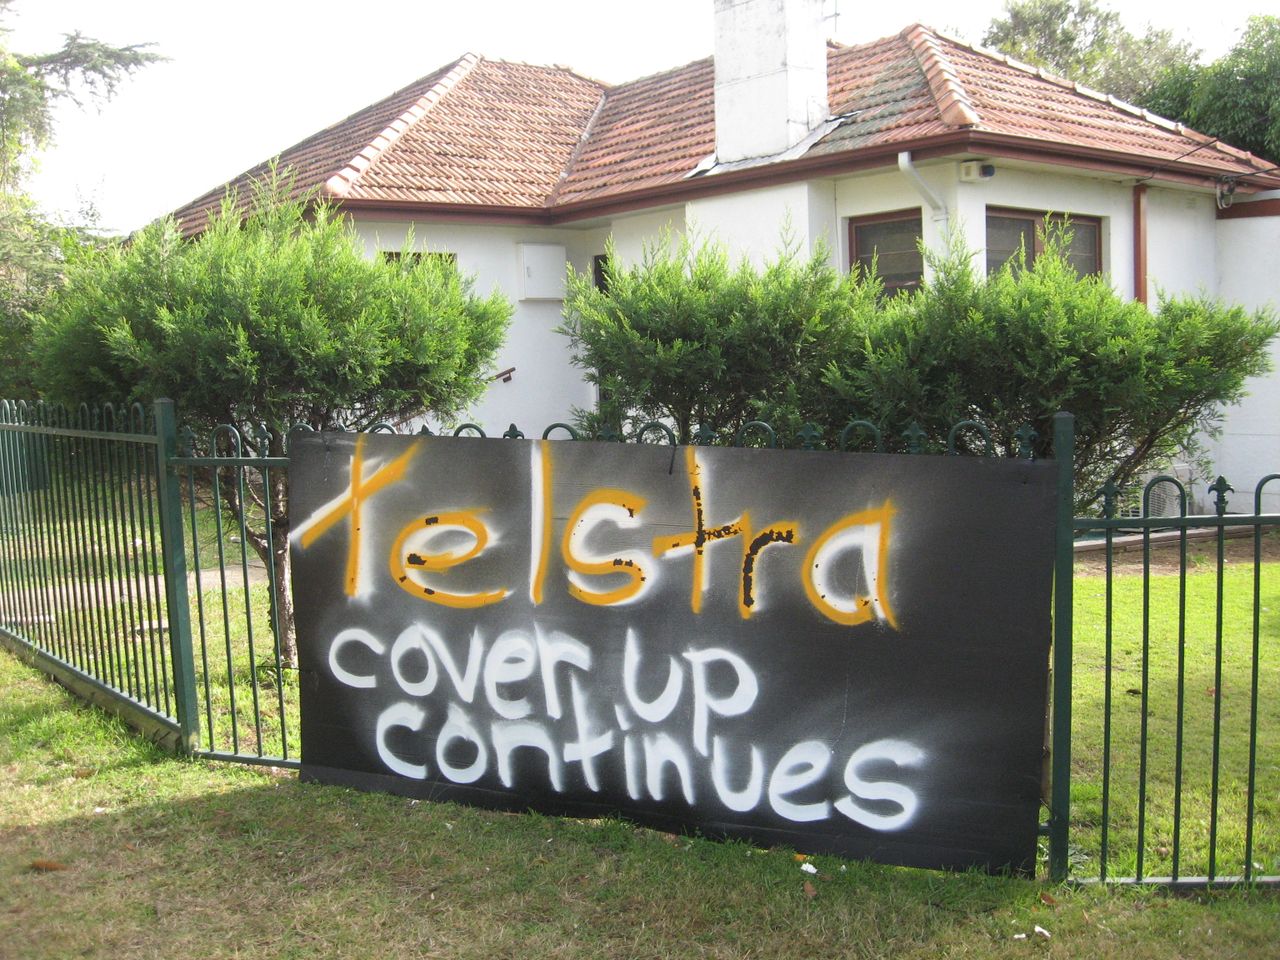 telstra
cover up
continues